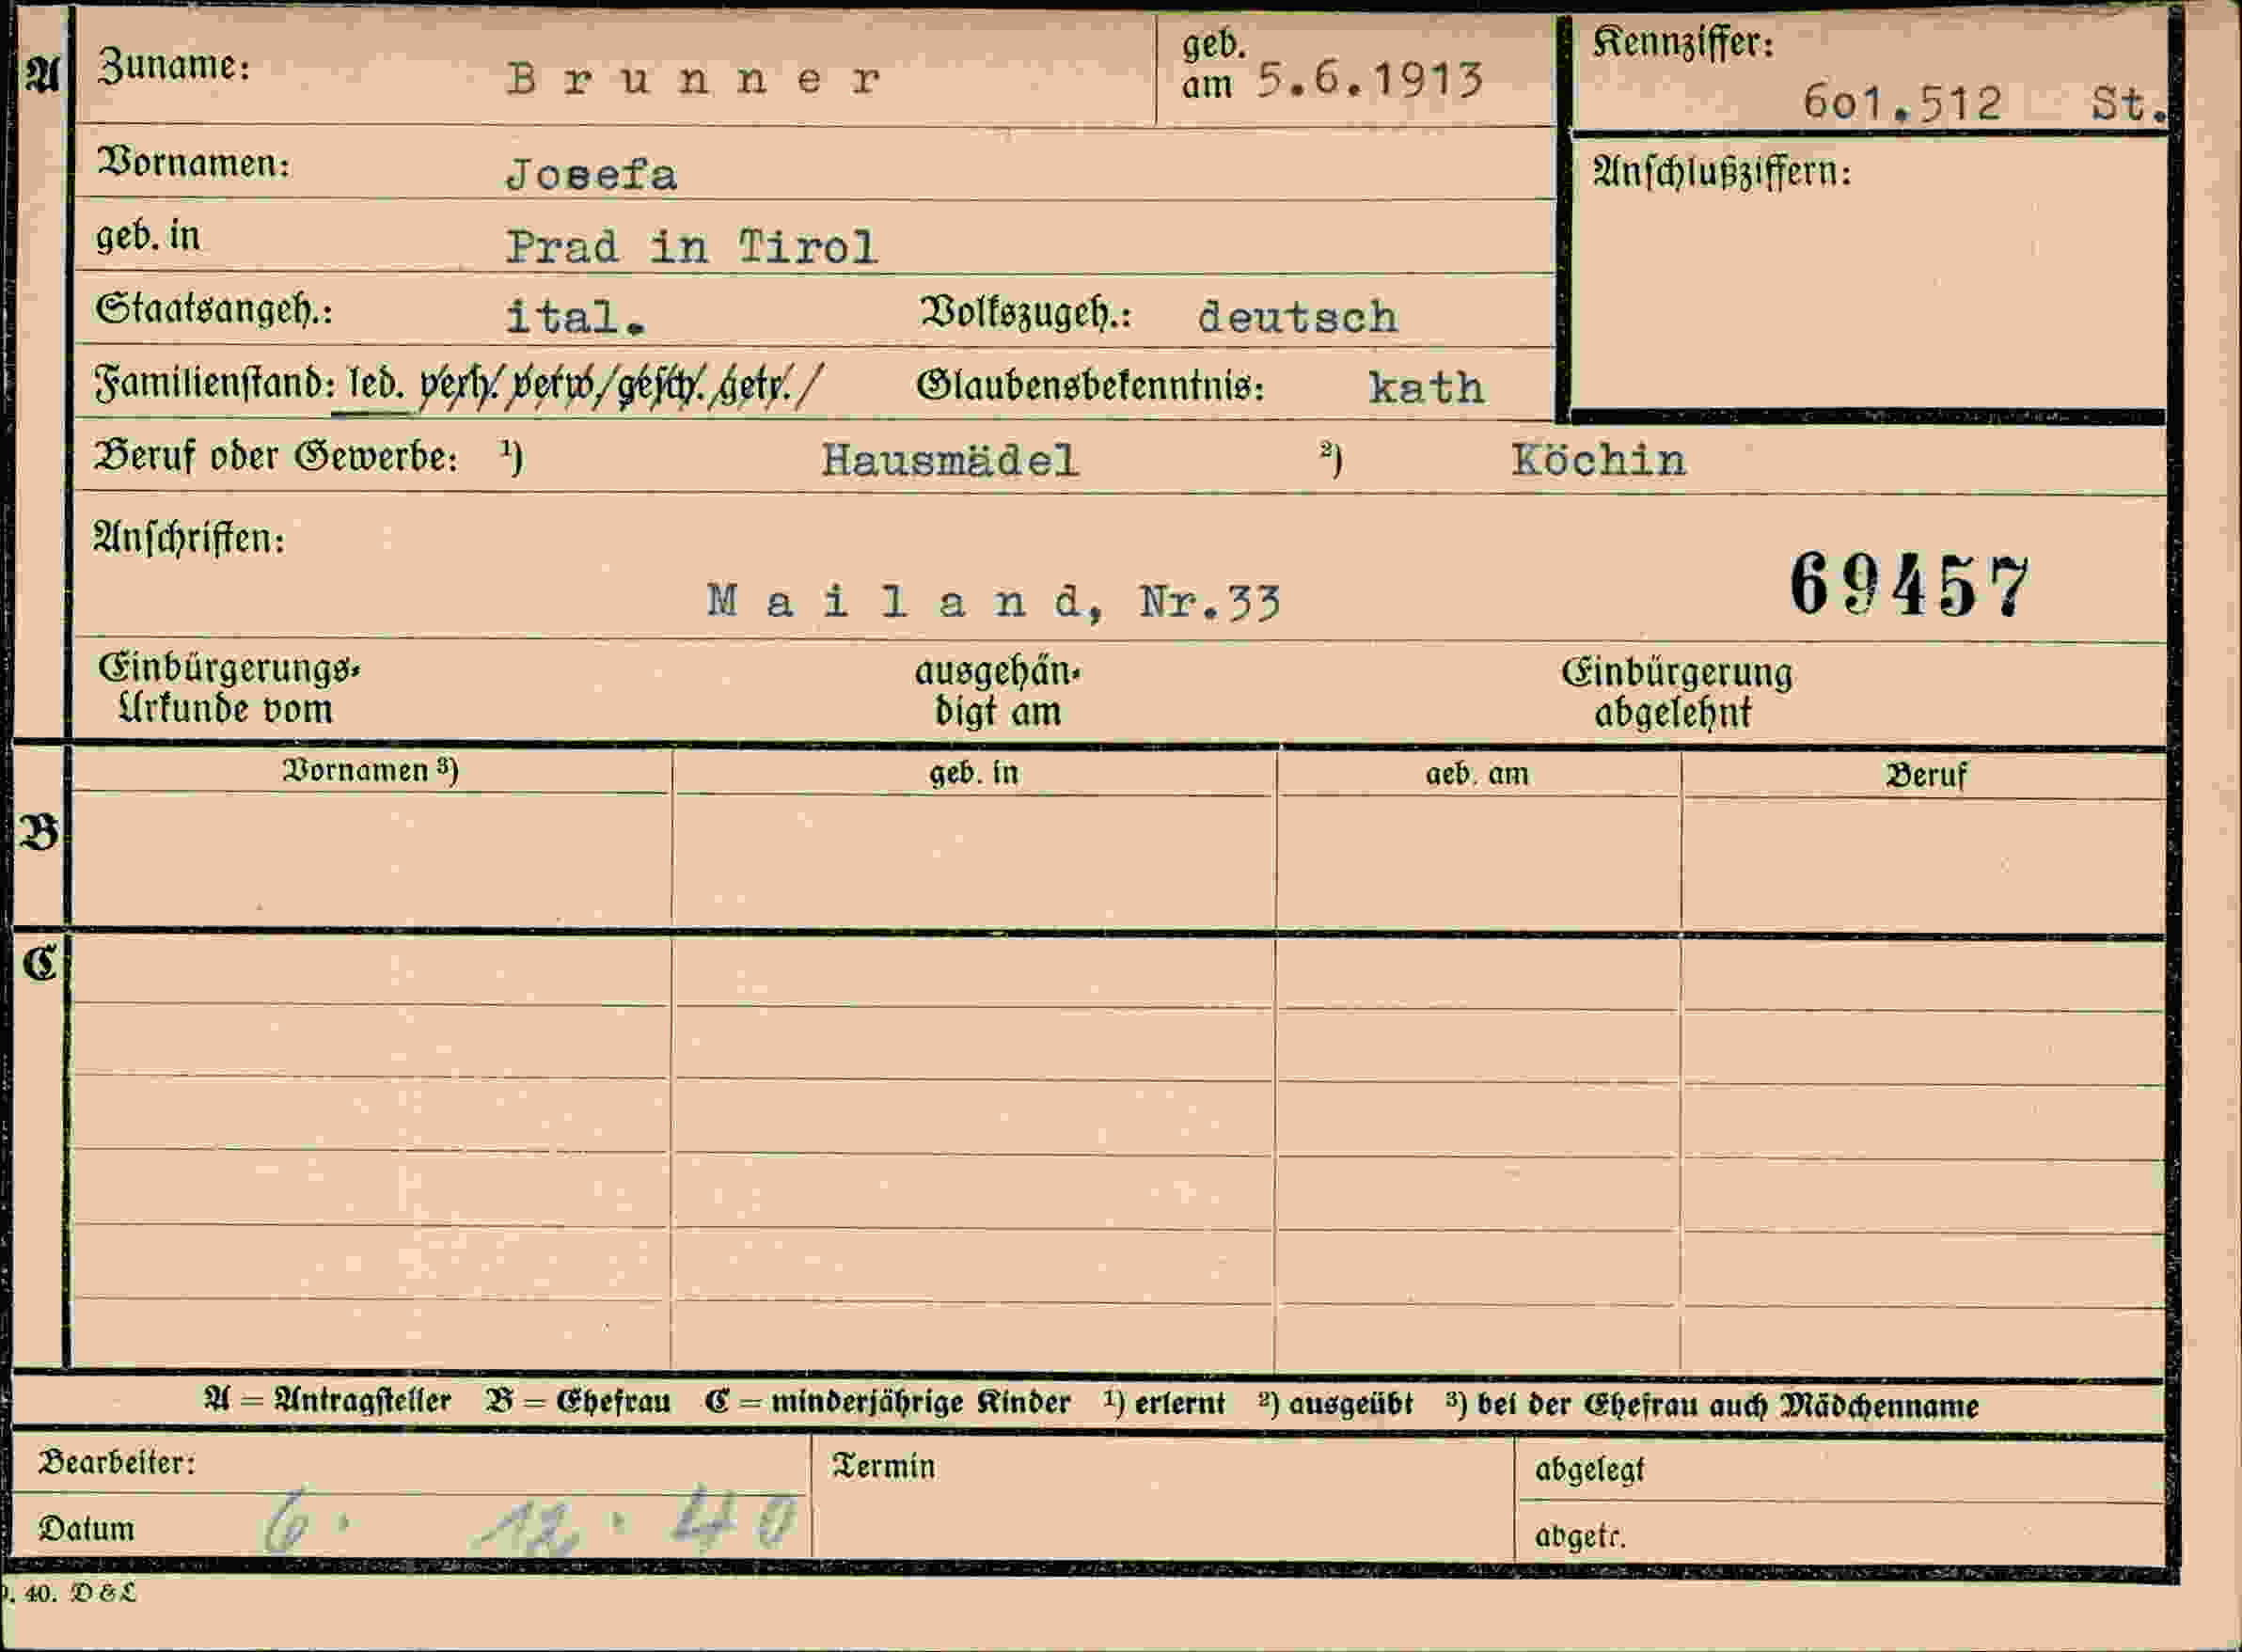 A Zuname: Brunner geb. am 5.6.1913 Kennziffer: 6o1.512 St.
Vornamen: Josefa Anschlußziffern:
geb. in Prad in Tirol
Staatsangeh.: ital. Volkszugeh.: deutsch
Familienstand: led. verh. verw. gesch. getr. Glaubensbekenntnis: kath
Beruf oder Gewerbe: ¹) Hausmädel ²) Köchin
Anschriften:
Mailand, Nr.33 69457
Einbürgerungs-Urkunde vom ausgehändigt am Einbürgerung abgelehnt
B Vornamen ³) geb. in geb. am Beruf
C
A = Antragsteller B = Ehefrau C = minderjährige Kinder ¹) erlernt ²) ausgeübt ³) bei der Ehefrau auch Mädchenname
Bearbeiter: Termin abgelegt
Datum 6. 12. 40 abgetr.
40. D & L